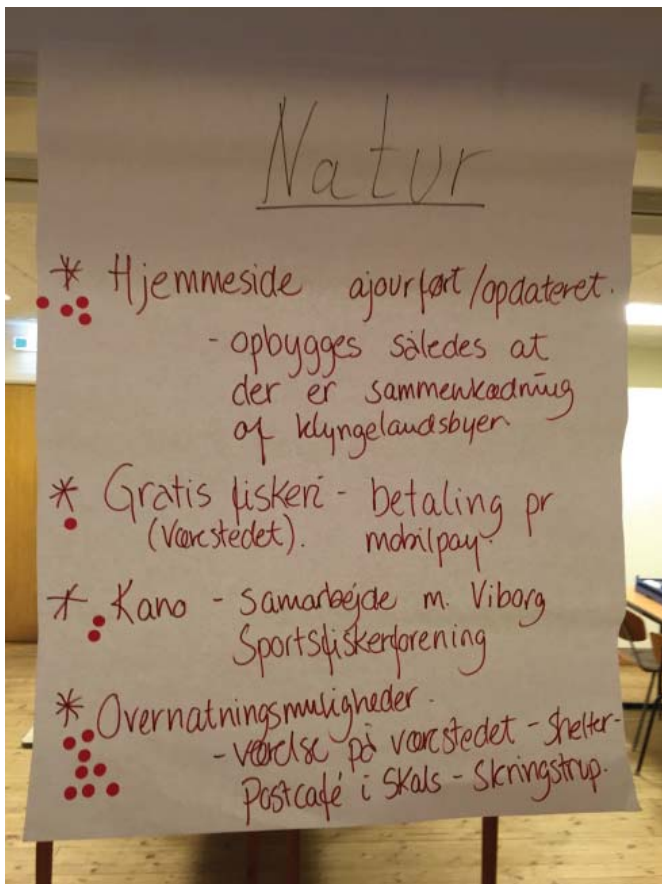 Natur
* Hjemmeside ajourført/opdateret.
- opbygges således at
der er sammenkædning
af klyngelandsbyen
* Gratis fiskeri - betaling pr
(Værestedet). mobilpay.
* Kano - samarbejde m. Viborg
Sportsfiskerforening
* Overnatningsmuligheder.
- værelse på værestedet - shelter -
Postcafé i Skals - Skringstrup.